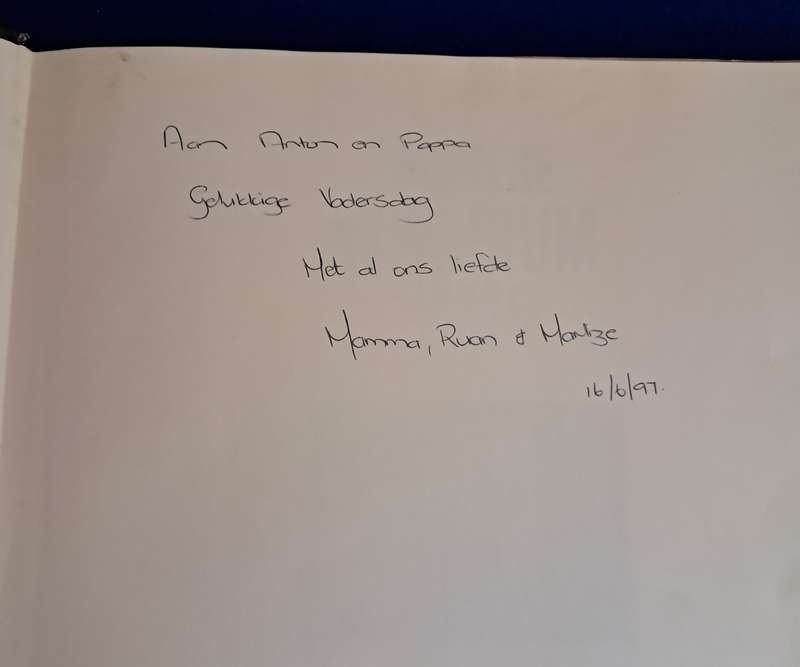 Aan Anton en Pappa
Gelukkige Vadersdag
Met al ons liefde
Mamma, Ruan & Marlize
16/6/97.